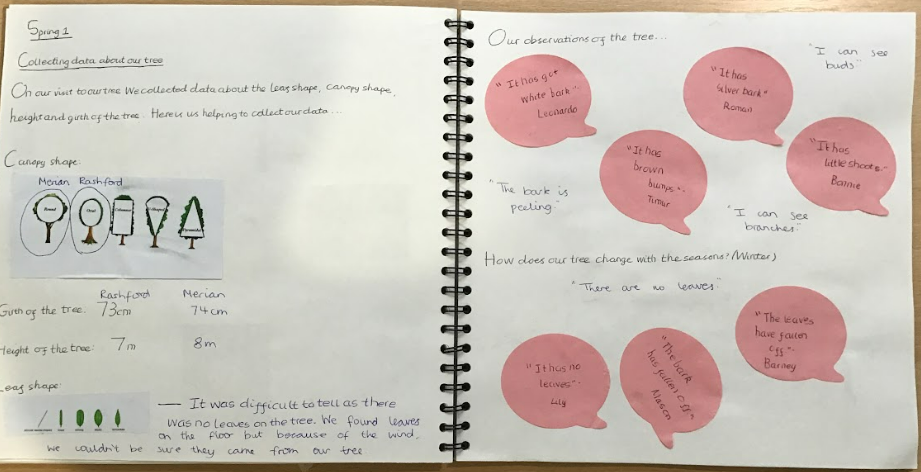 Spring 1
Collecting data about our tree
On our visit to our tree We collected data about the leaf shape, canopy shape,
height and girth of the tree. Here is us helping to collect our data...
Canopy shape:
Merian Rashford
Round
Oval
Girth of the tree:
Rashford
73cm
Merian
74cm
Height of the tree: 7m 8m
Leaf shape:
— It was difficult to tell as there
was no leaves on the tree. We found leaves
on the floor but because of the wind,
we couldn't be sure they came from our tree
Our observations of the tree...
"It has got
white bark".
Leonardo
"It has
silver bark"
Roman
"I can see
buds"
"It has
brown
bumps".
Timur
"It has
little shoots"
Barnie
"The bark is
peeling."
"I can see
branches"
How does our tree change with the seasons? (Winter)
"There are no leaves."
"It has no
leaves".
Lily
"The bark
has fallen off"
Mason
"The leaves
have fallen
off".
Barney